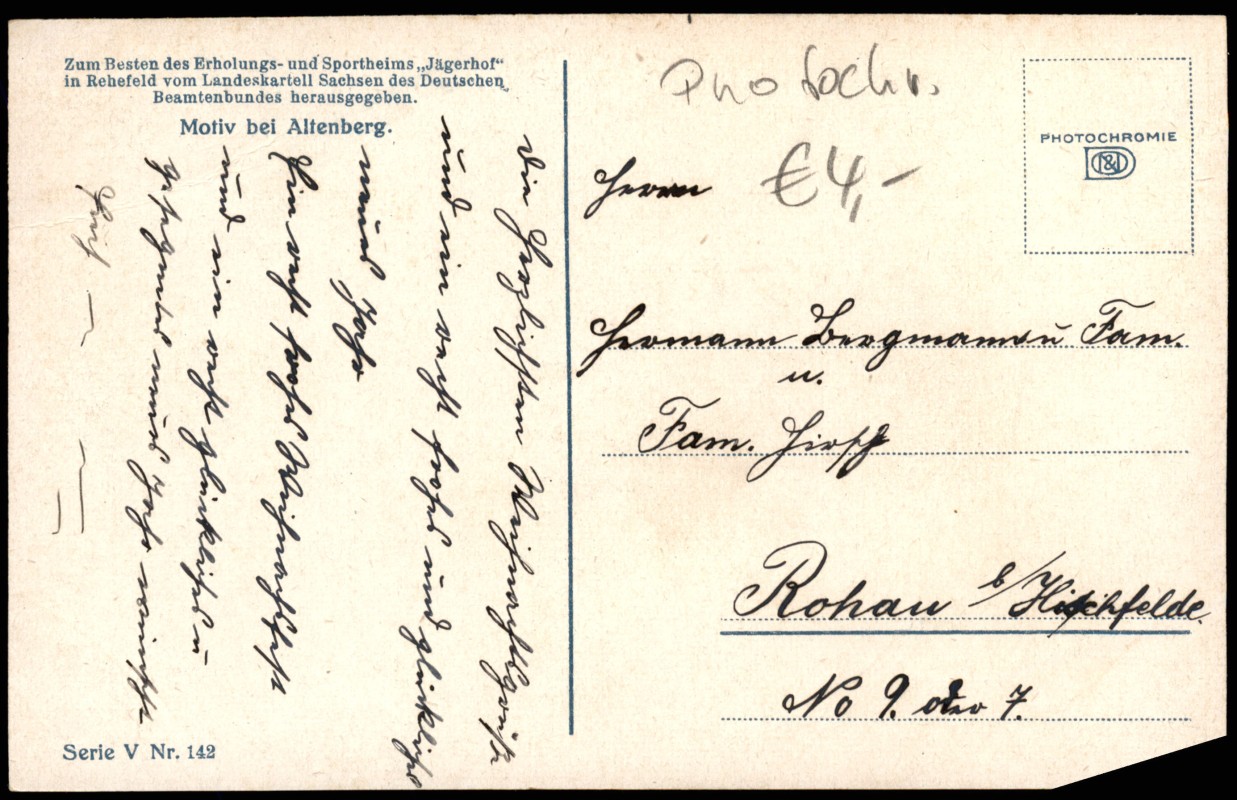 Zum Besten des Erholungs- und Sportheims „Jägerhof“
in Rehefeld vom Landeskartell Sachsen des Deutschen
Beamtenbundes herausgegeben.
Motiv bei Altenberg.
Die herzlichsten Weihnachtsgrüße
und ein recht frohes und glückliches
neues Jahr
Ein recht frohes Weihnachtsfest
und ein recht glückliches u
gesegnetes neues Jahr wünscht
Serie V Nr. 142
Photochr.
€4,-
PHOTOCHROMIE
Herrn
Hermann Bergmann u Fam.
u.
Fam. Hirsch
Rohau b/Hirschfelde
No 9. oder 7.